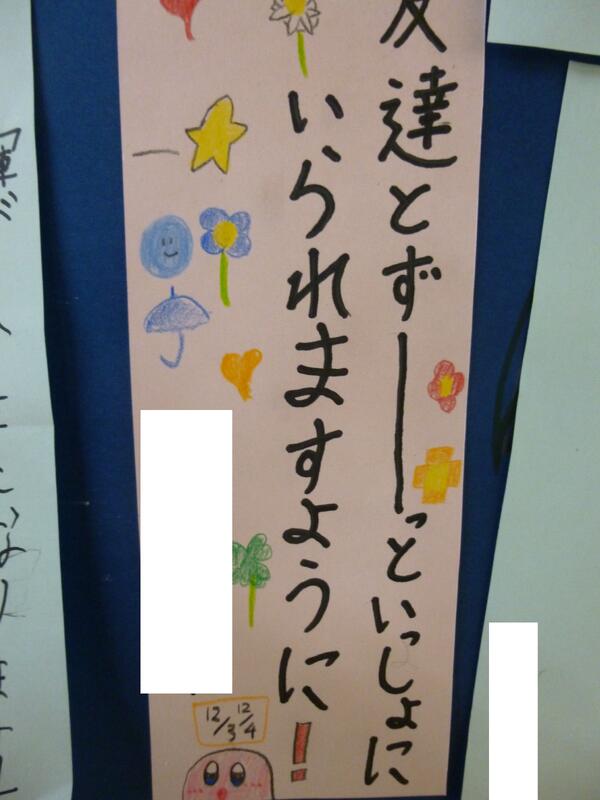 友達とずーーっといっしょに
いられますように!
12/3 12/4